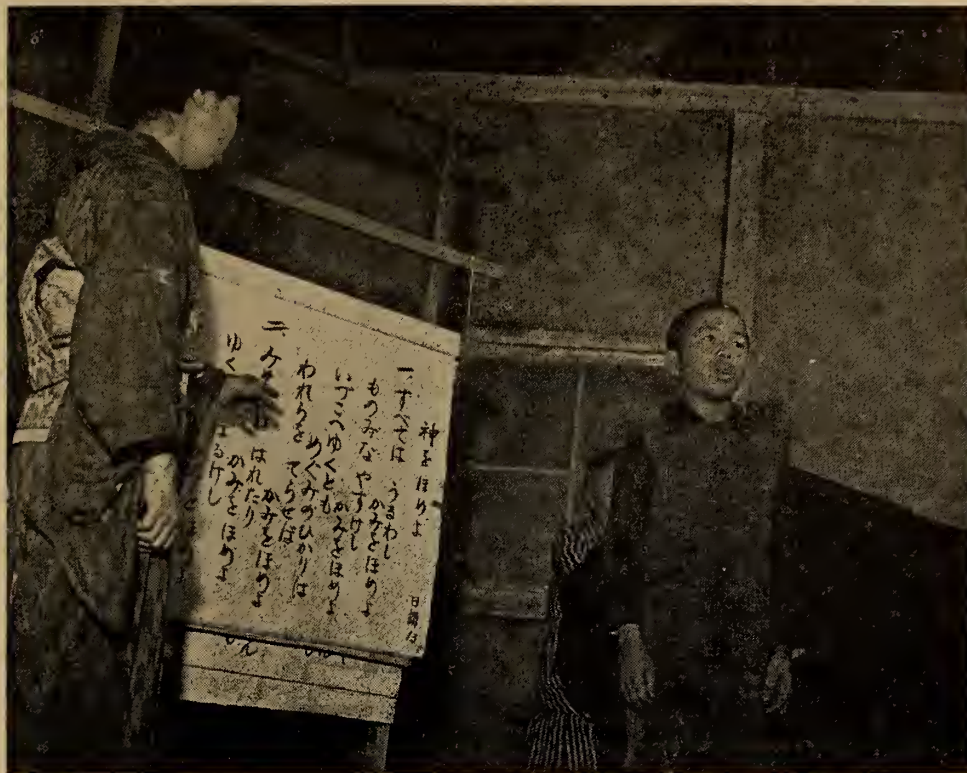 神をほめよ
日讃
一、すべては うるわし
かみをほめよ
ものみな やすけし
かみをほめよ
いづこへゆくとも
めぐみのひかりは
われらを てらせば
かみをほめよ
二、み
はれたり
かみをほめよ
ゆく はるけし